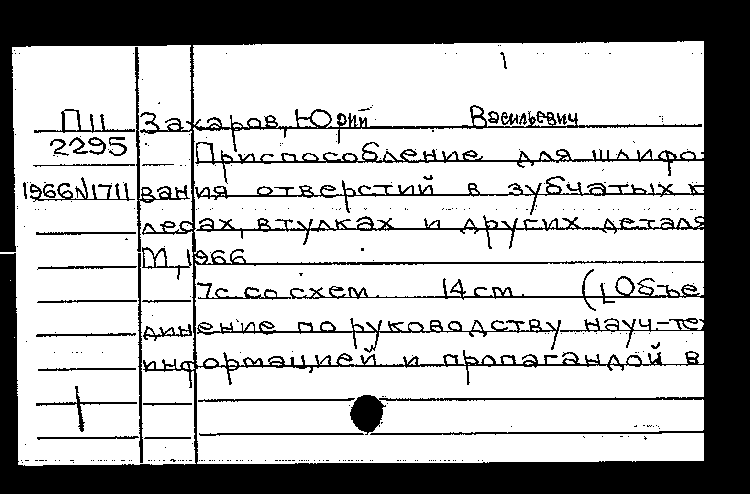 1
П11 Захаров, Юрий Васильевич
2295 Приспособление для шлифо-
1966N1711 вания отверстий в зубчатых к
лесах, втулках и других деталя
М, 1966
7с со схем. 14 см. ([Объе
динение по руководству науч-те
информацией и пропагандой в